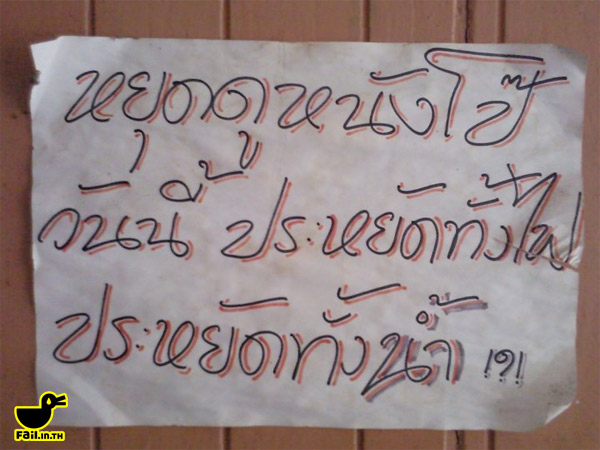 หยุดดูหนังโป๊
วันนี้ ประหยัดทั้งไฟ
ประหยัดทั้งน้ำ !?!
FAIL.in.TH